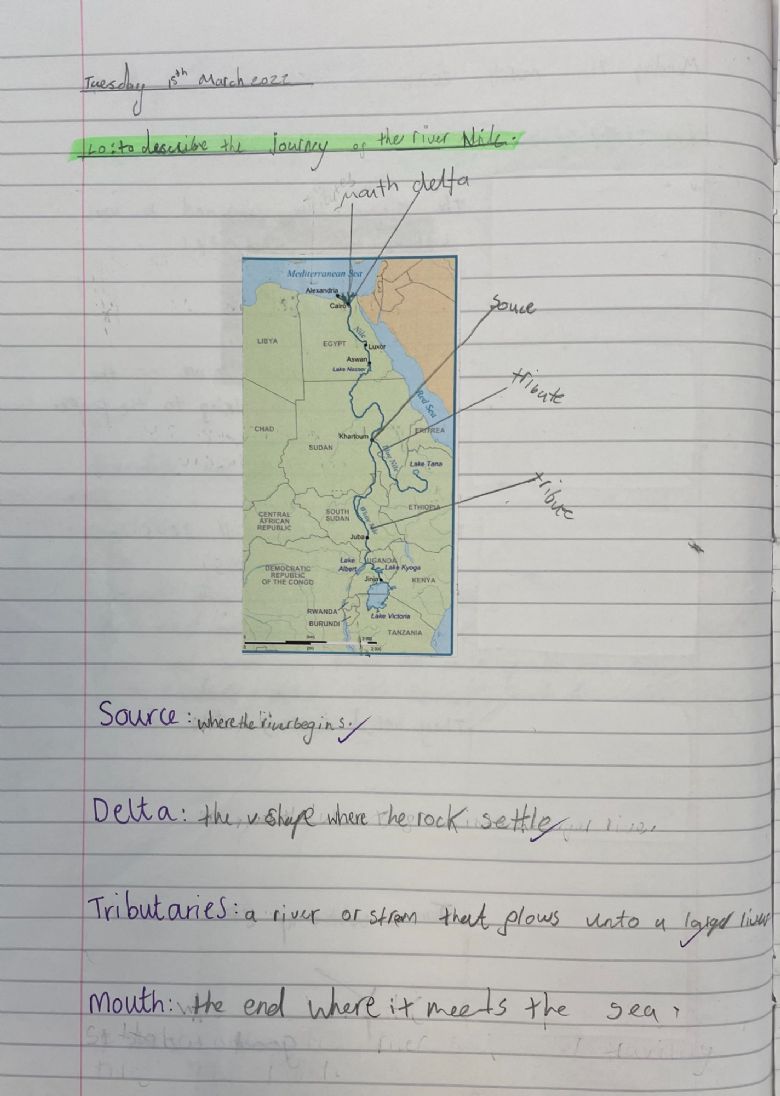 Tuesday 15th March 2022
LO: to describe the journey of the river Nile.
mouth delta
Mediterranean Sea
Alexandria
Cairo
Souce
LIBYA
EGYPT
Nile
Luxor
Aswan
Lake Nasser
tribute
Red Sea
CHAD
Khartoum
ERITREA
SUDAN
Blue Nile
Lake Tana
tribute
CENTRAL AFRICAN REPUBLIC
SOUTH SUDAN
White Nile
ETHIOPIA
Juba
DEMOCRATIC REPUBLIC OF THE CONGO
Lake Albert
UGANDA
Lake Kyoga
Jinja
KENYA
RWANDA
BURUNDI
Lake Victoria
TANZANIA
Source: where the river begins.
Delta: the v shape where the rock settle
Tributaries: a river or strem that flows unto a larged river
Mouth: the end where it meets the sea.